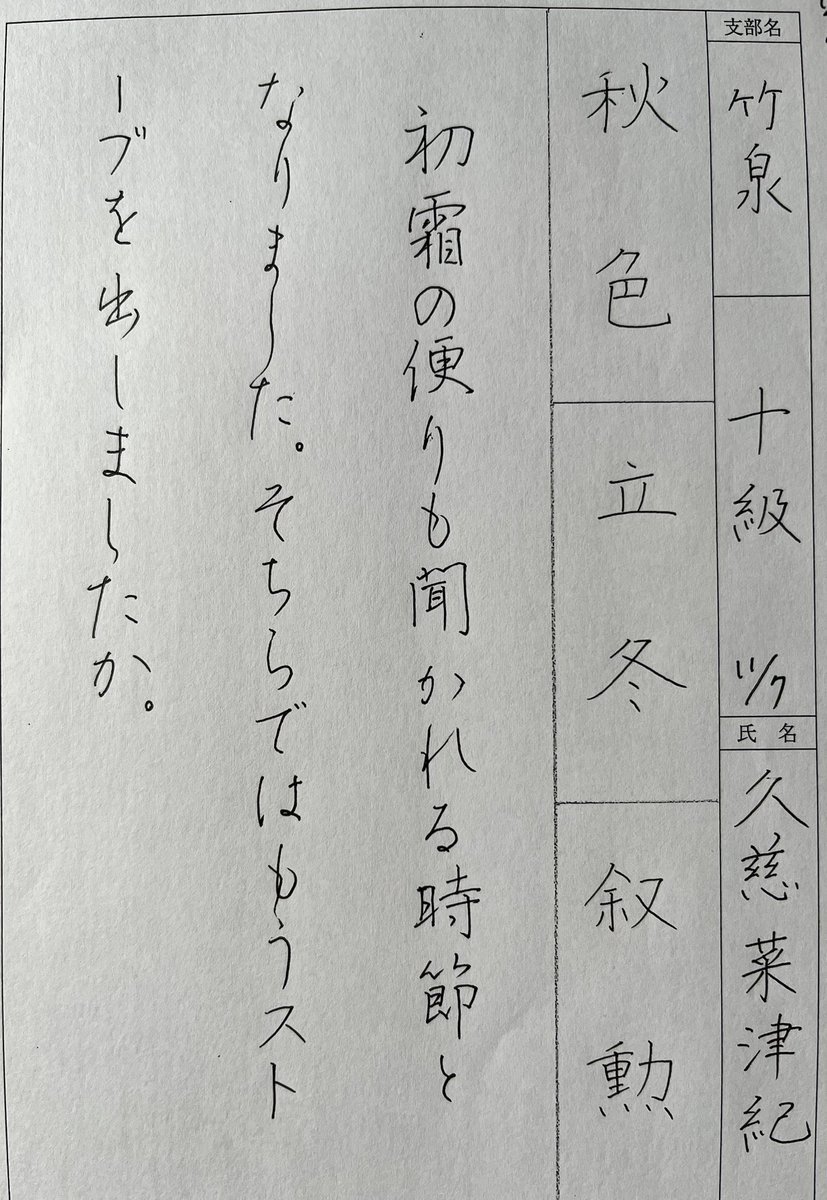 支部名
竹泉
十級
11/7
氏名
久慈菜津紀
秋色
立冬
叙勲
初霜の便りも聞かれる時節と
なりました。そちらではもうスト
ーブを出しましたか。